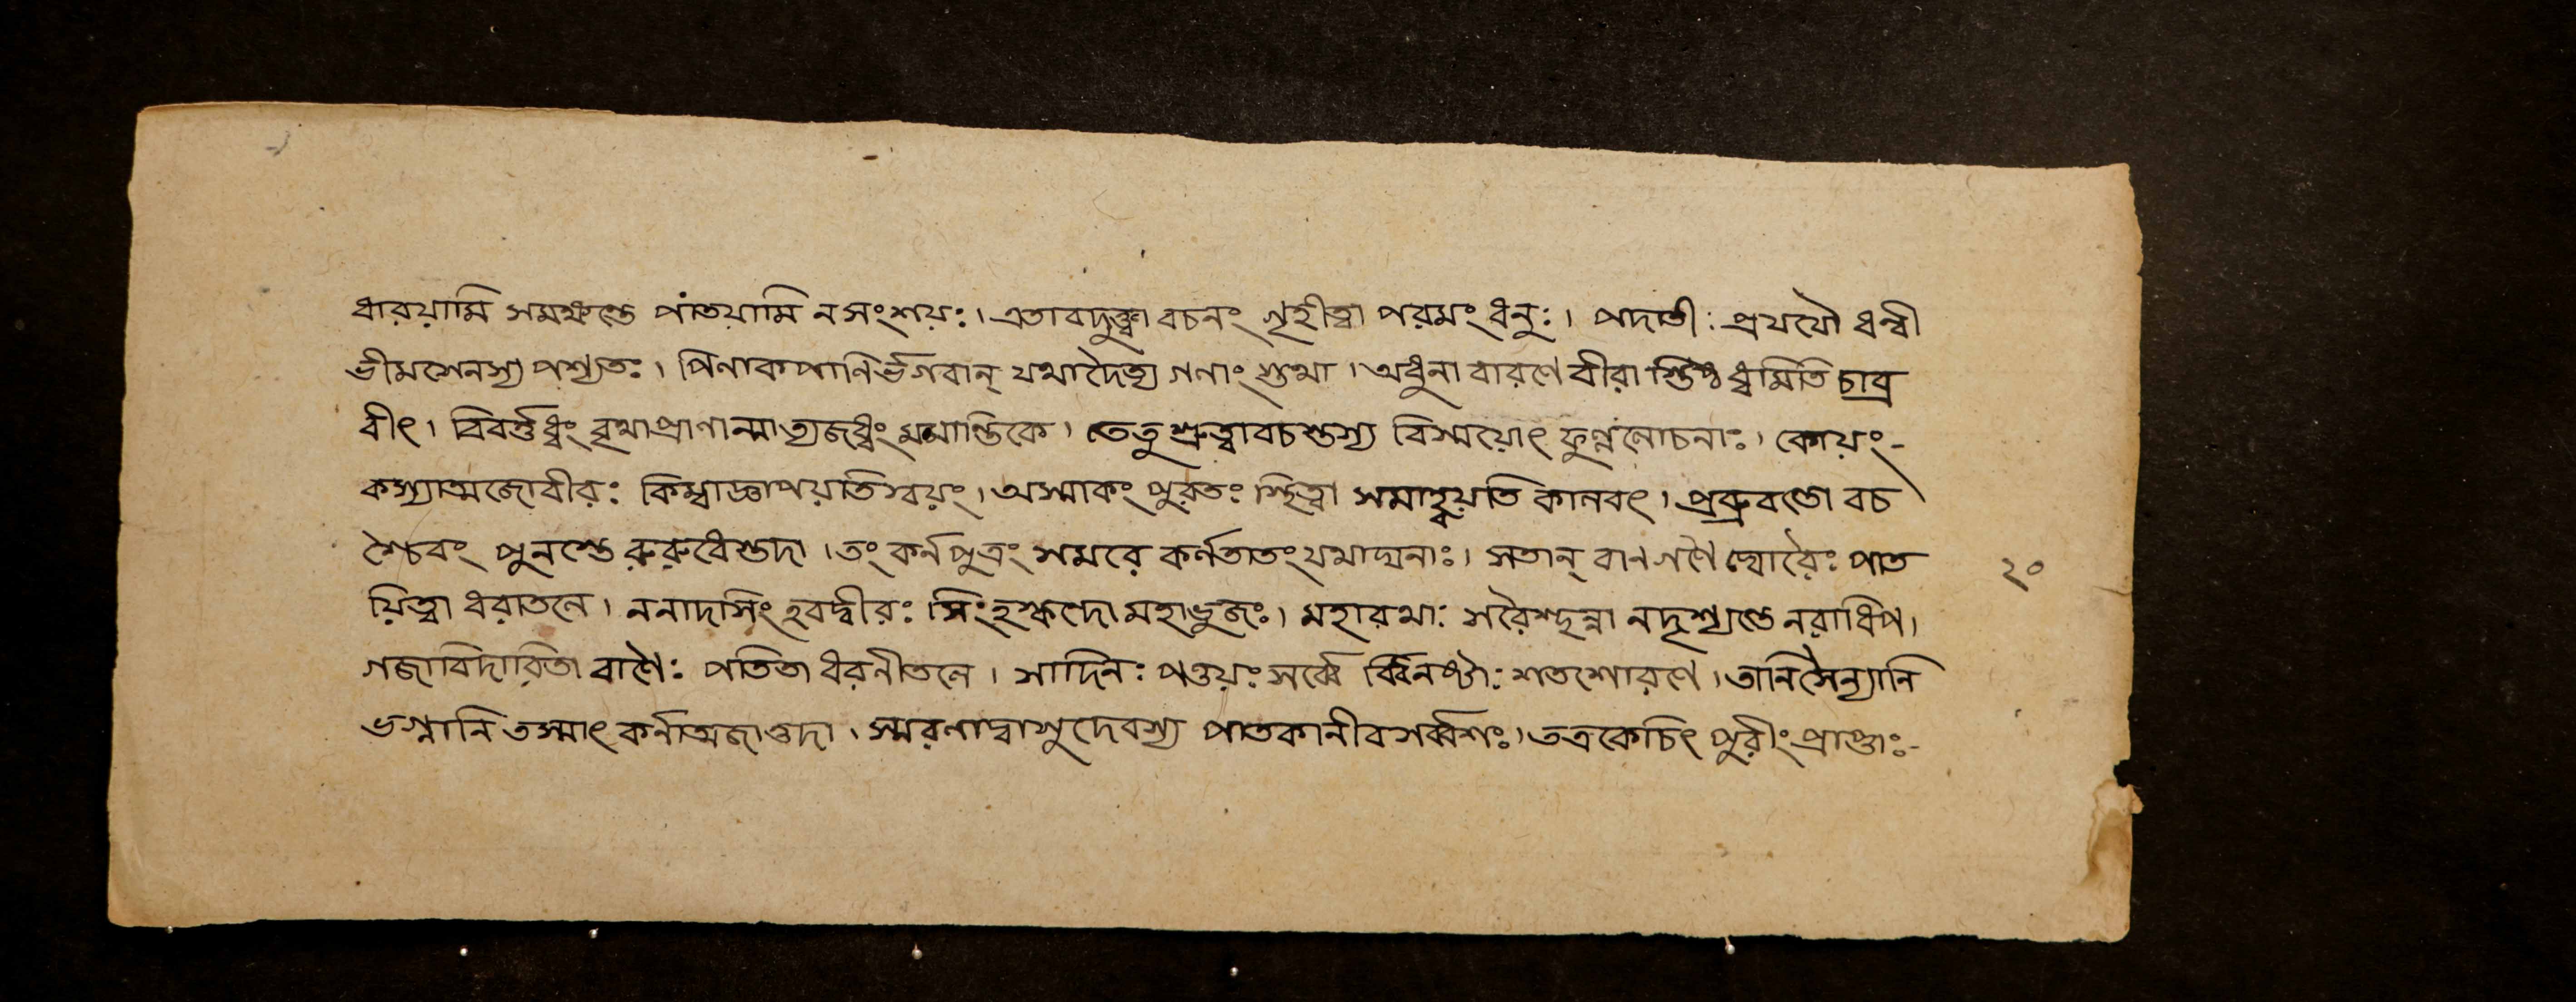 ধারয়ামি সমক্ষন্তে পাতয়ামি ন সংশয়ঃ। এতাবদুক্ত্বা বচনং গৃহীত্বা পরমং ধনুঃ। পদাতীঃ প্রযযৌ ধন্বী
ভীমসেনস্য পশ্যতঃ। পিনাকপানির্ভগবান্ যথা দৈত্য গনাং স্তথা। অধুনা বারণে বীরা স্তিষ্ঠ ধ্বমিতি চাব্র
বীৎ। বিবর্ত্তধ্বং বৃথাপ্রাণান্মাত্যজধ্বং মমান্তিকে। তেতু শ্রুত্বাবচস্তস্য বিস্ময়োৎ ফুল্লনোচনাঃ। কোয়ং-
কস্যাত্মজোবীরঃ কিম্বাজ্ঞাপয়তি স্বয়ং। অস্মাকং পুরতঃ স্থিত্বা সমাহ্বয়তি কানবৎ। প্রব্রুবন্তো বচ
শ্চৈবং পুনস্তে রুরুধেস্তদা। তং কর্নপুত্রং সমরে কর্ণতাতং যথাদ্মনাঃ। সতান্ বানগণৈ র্ঘোরৈঃ পাত
য়িত্বা ধরাতনে। ননাদসিংহবদ্বীরঃ সিংহস্কন্দো মহাভুজঃ। মহারথাঃ সরৈশ্ছন্না নদৃশ্যন্তে নরাধিপ।
গজাবিদারিতা বাণৈঃ পতিতা ধরনীতনে। সাদিনঃ পত্তয়ঃ সর্ব্বে র্ব্বিনষ্টাঃ শতশোরণে। তানিসৈন্যানি
ভগ্নানি তস্মাৎ কর্নাত্মজাত্তদা। স্মরণাদ্বাসুদেবস্য পাতকানীব সর্ব্বশঃ। তত্রকেচিৎ পুরীং প্রাপ্তাঃ-
২০